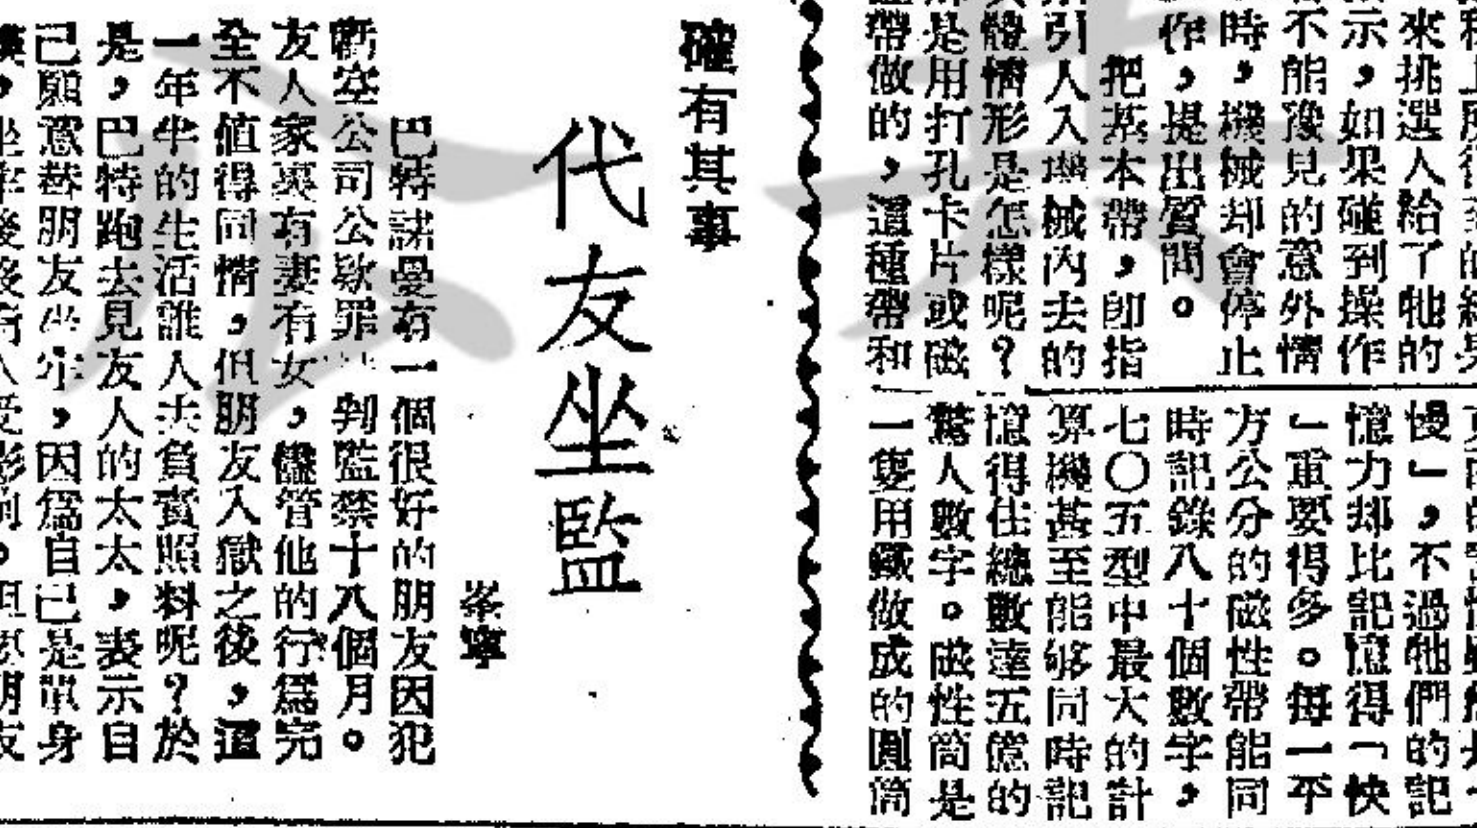 來挑選人給了牠的
示，如果碰到操作
不能豫見的意外情
時，機械却會停止
作，提出質問。
把基本帶，卽指
引人入機械內去的
體情形是怎樣呢？
是用打孔卡片或磁
帶做的，這種帶和
慢」，不過牠們的記
憶力却比記憶得「快
」重要得多。每一平
方公分的磁性帶能同
時記錄八十個數字，
七〇五型中最大的計
算機甚至能够同時記
憶得住總數達五億的
驚人數字。磁性筒是
一隻用鐵做成的圓筒
確有其事
代友坐監
峯寧
巴特諾曼有一個很好的朋友因犯
虧空公司公款罪判監禁十八個月。
友人家裏有妻有女，儘管他的行爲完
全不值得同情，但朋友入獄之後，這
一年半的生活誰人去負責照料呢？於
是，巴特跑去見友人的太太，表示自
己願意替朋友坐牢，因爲自己是單身